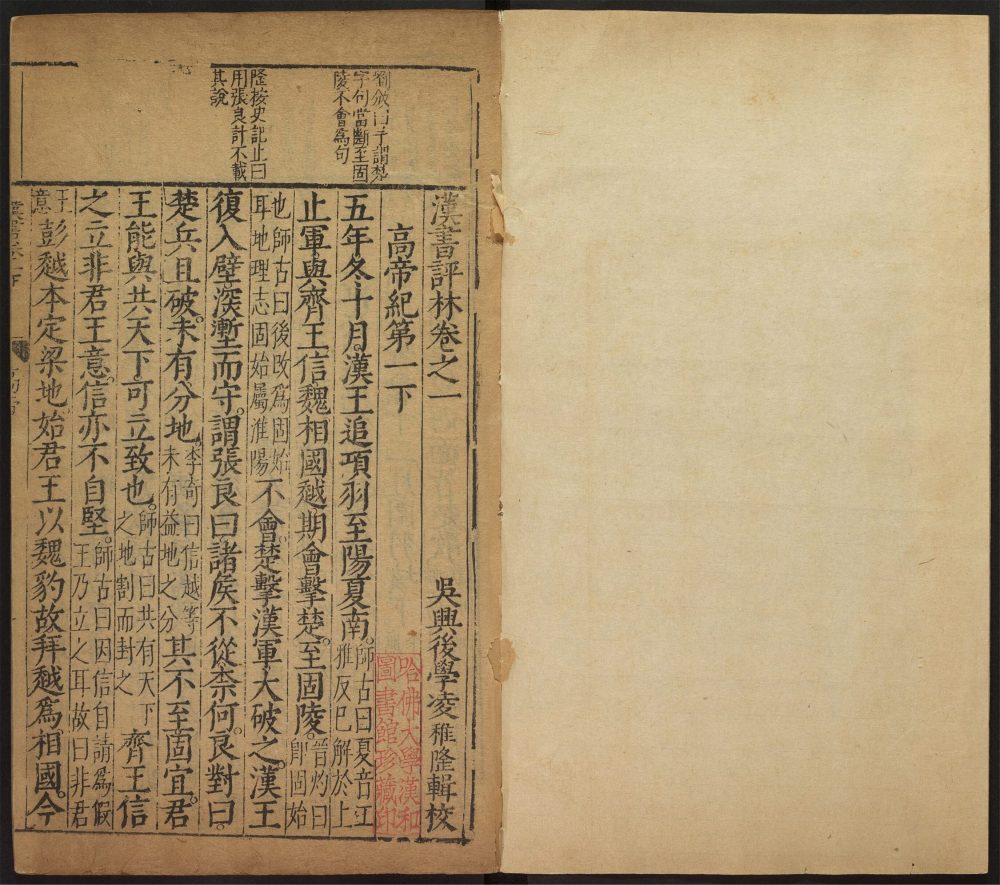 漢書評林卷之一
吳興後學凌稚隆輯校
高帝紀第一下
五年冬十月漢王追項羽至陽夏南。師古曰夏音工雅反已解於上
止軍與齊王信魏相國越期會擊楚。至固陵。晉灼曰即固始
也師古曰後改爲固始耳地理志固始屬淮陽不會。楚擊漢軍大破之。漢王
復入壁深塹而守。謂張良曰諸侯不從柰何。良對曰。
楚兵且破。未有分地。李奇曰信越等未有益地之分其不至固宜。君
王能與共天下。可立致也。師古曰共有天下之地割而封之齊王信
之立非君王意。信亦不自堅。師古曰因信自請爲假王乃立之耳故曰非君
王意彭越本定梁地始君王以魏豹故拜越爲相國。今
劉攽曰予謂楚
字句當斷至固
陵不會爲句
隆按史記止曰
用張良計不載
其說
哈佛大學漢和
圖書館珍藏印